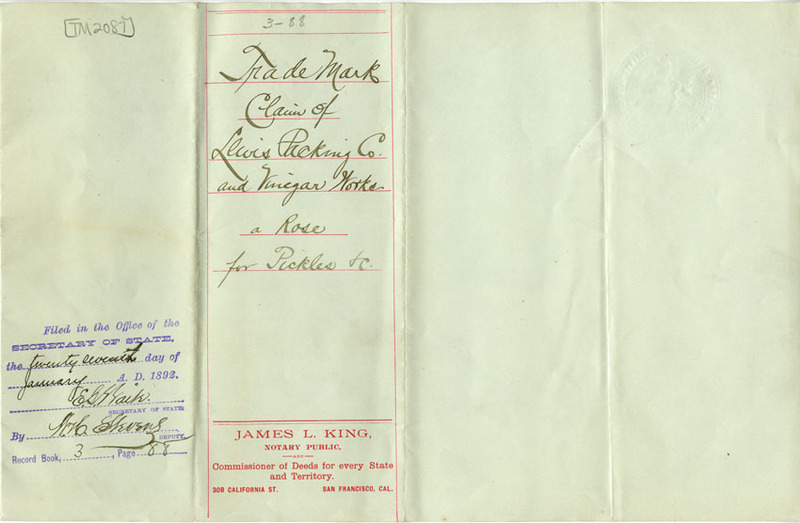 [TM2087]
Filed in the Office of the
SECRETARY OF STATE,
the twenty seventh day of
January A. D. 1892.
E G Waite.
SECRETARY OF STATE
By W. H. Stevens
DEPUTY.
Record Book, 3, Page 88
3-88
Trade Mark
Claim of
Lewis Packing Co.
and Vinegar Works
a Rose
for Pickles &c.
JAMES L. KING,
NOTARY PUBLIC,
AND
Commissioner of Deeds for every State
and Territory.
308 CALIFORNIA ST. SAN FRANCISCO, CAL.